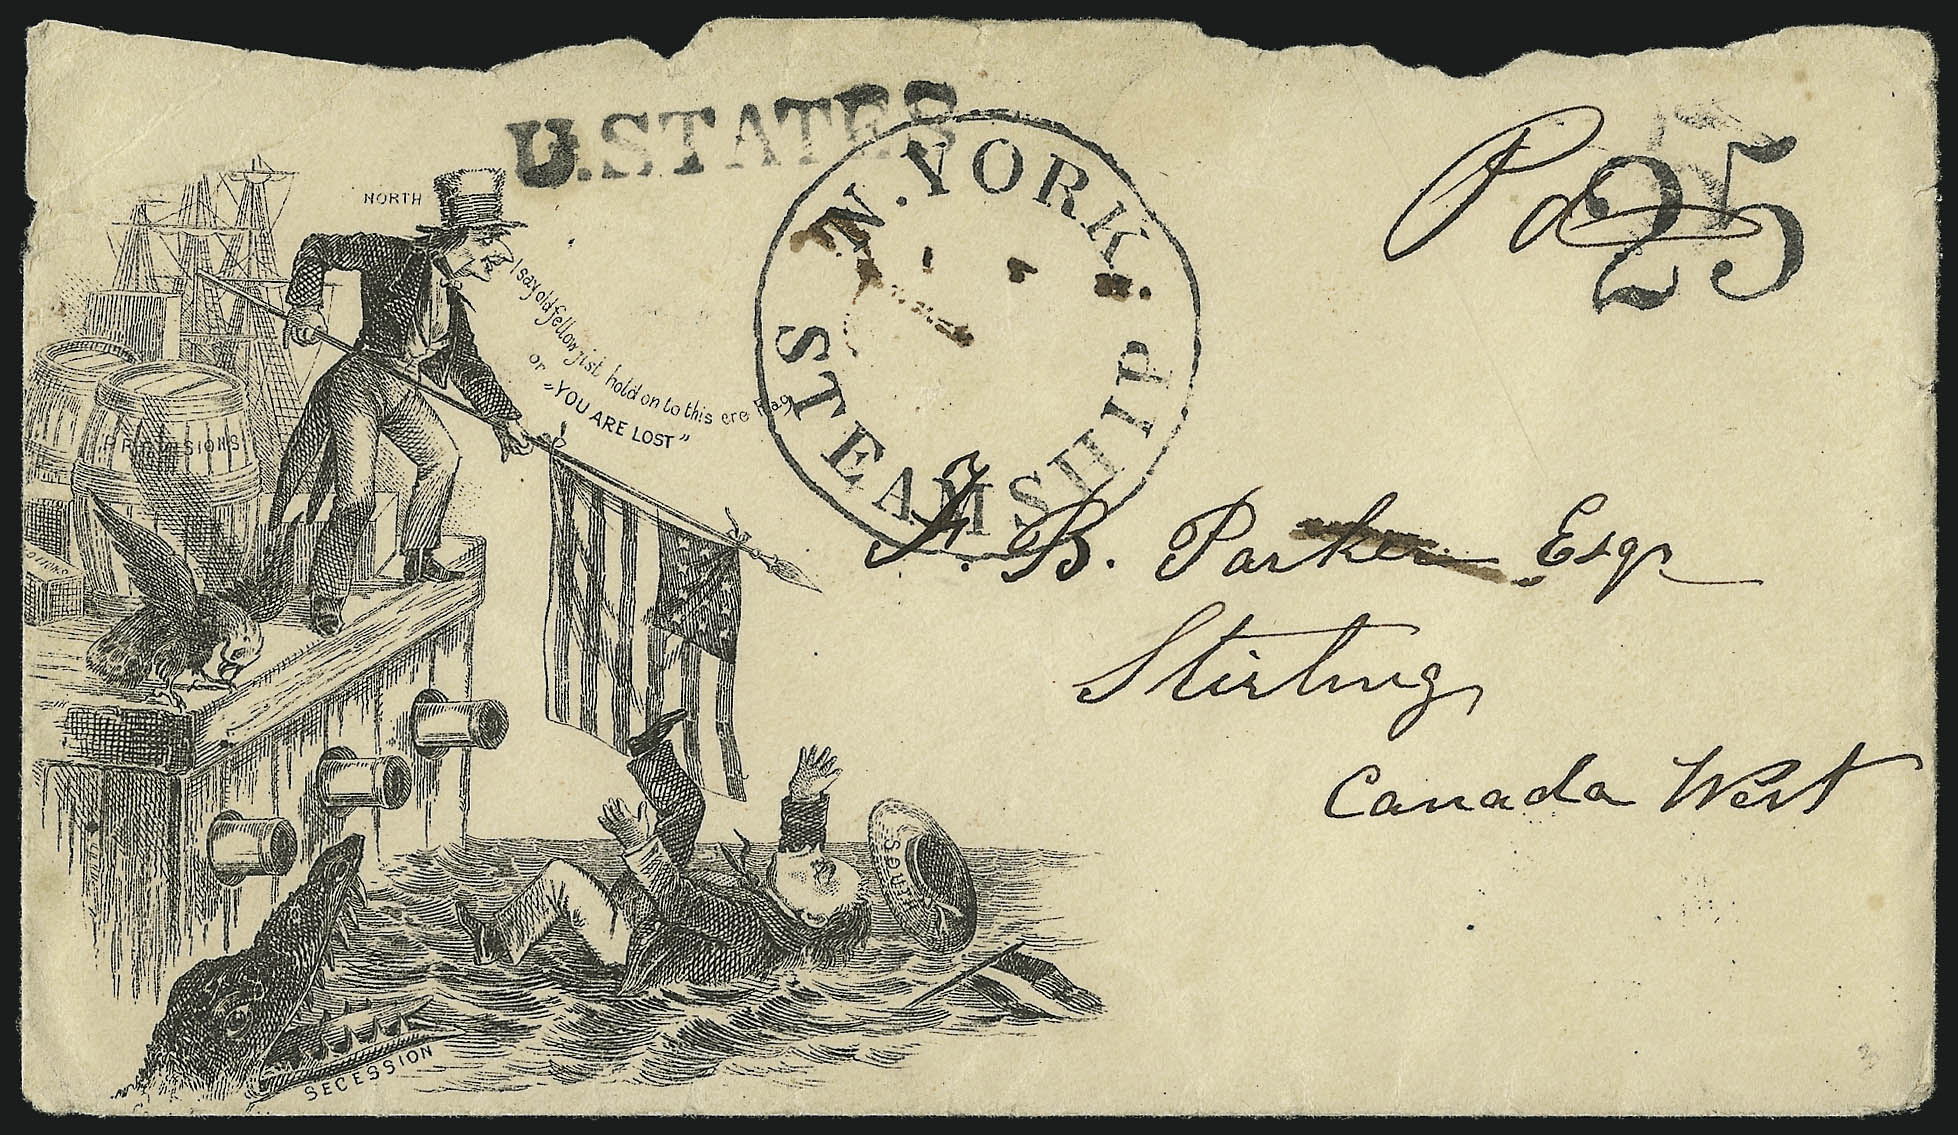 U.STATES
N. YORK.
STEAMSHIP
Pd
25
NORTH
I say old fellow jist hold on to this ere Flag
or "YOU ARE LOST"
PROVISIONS
J. B. Parker Esqr
Stirling
Canada West
SOUTH
SECESSION